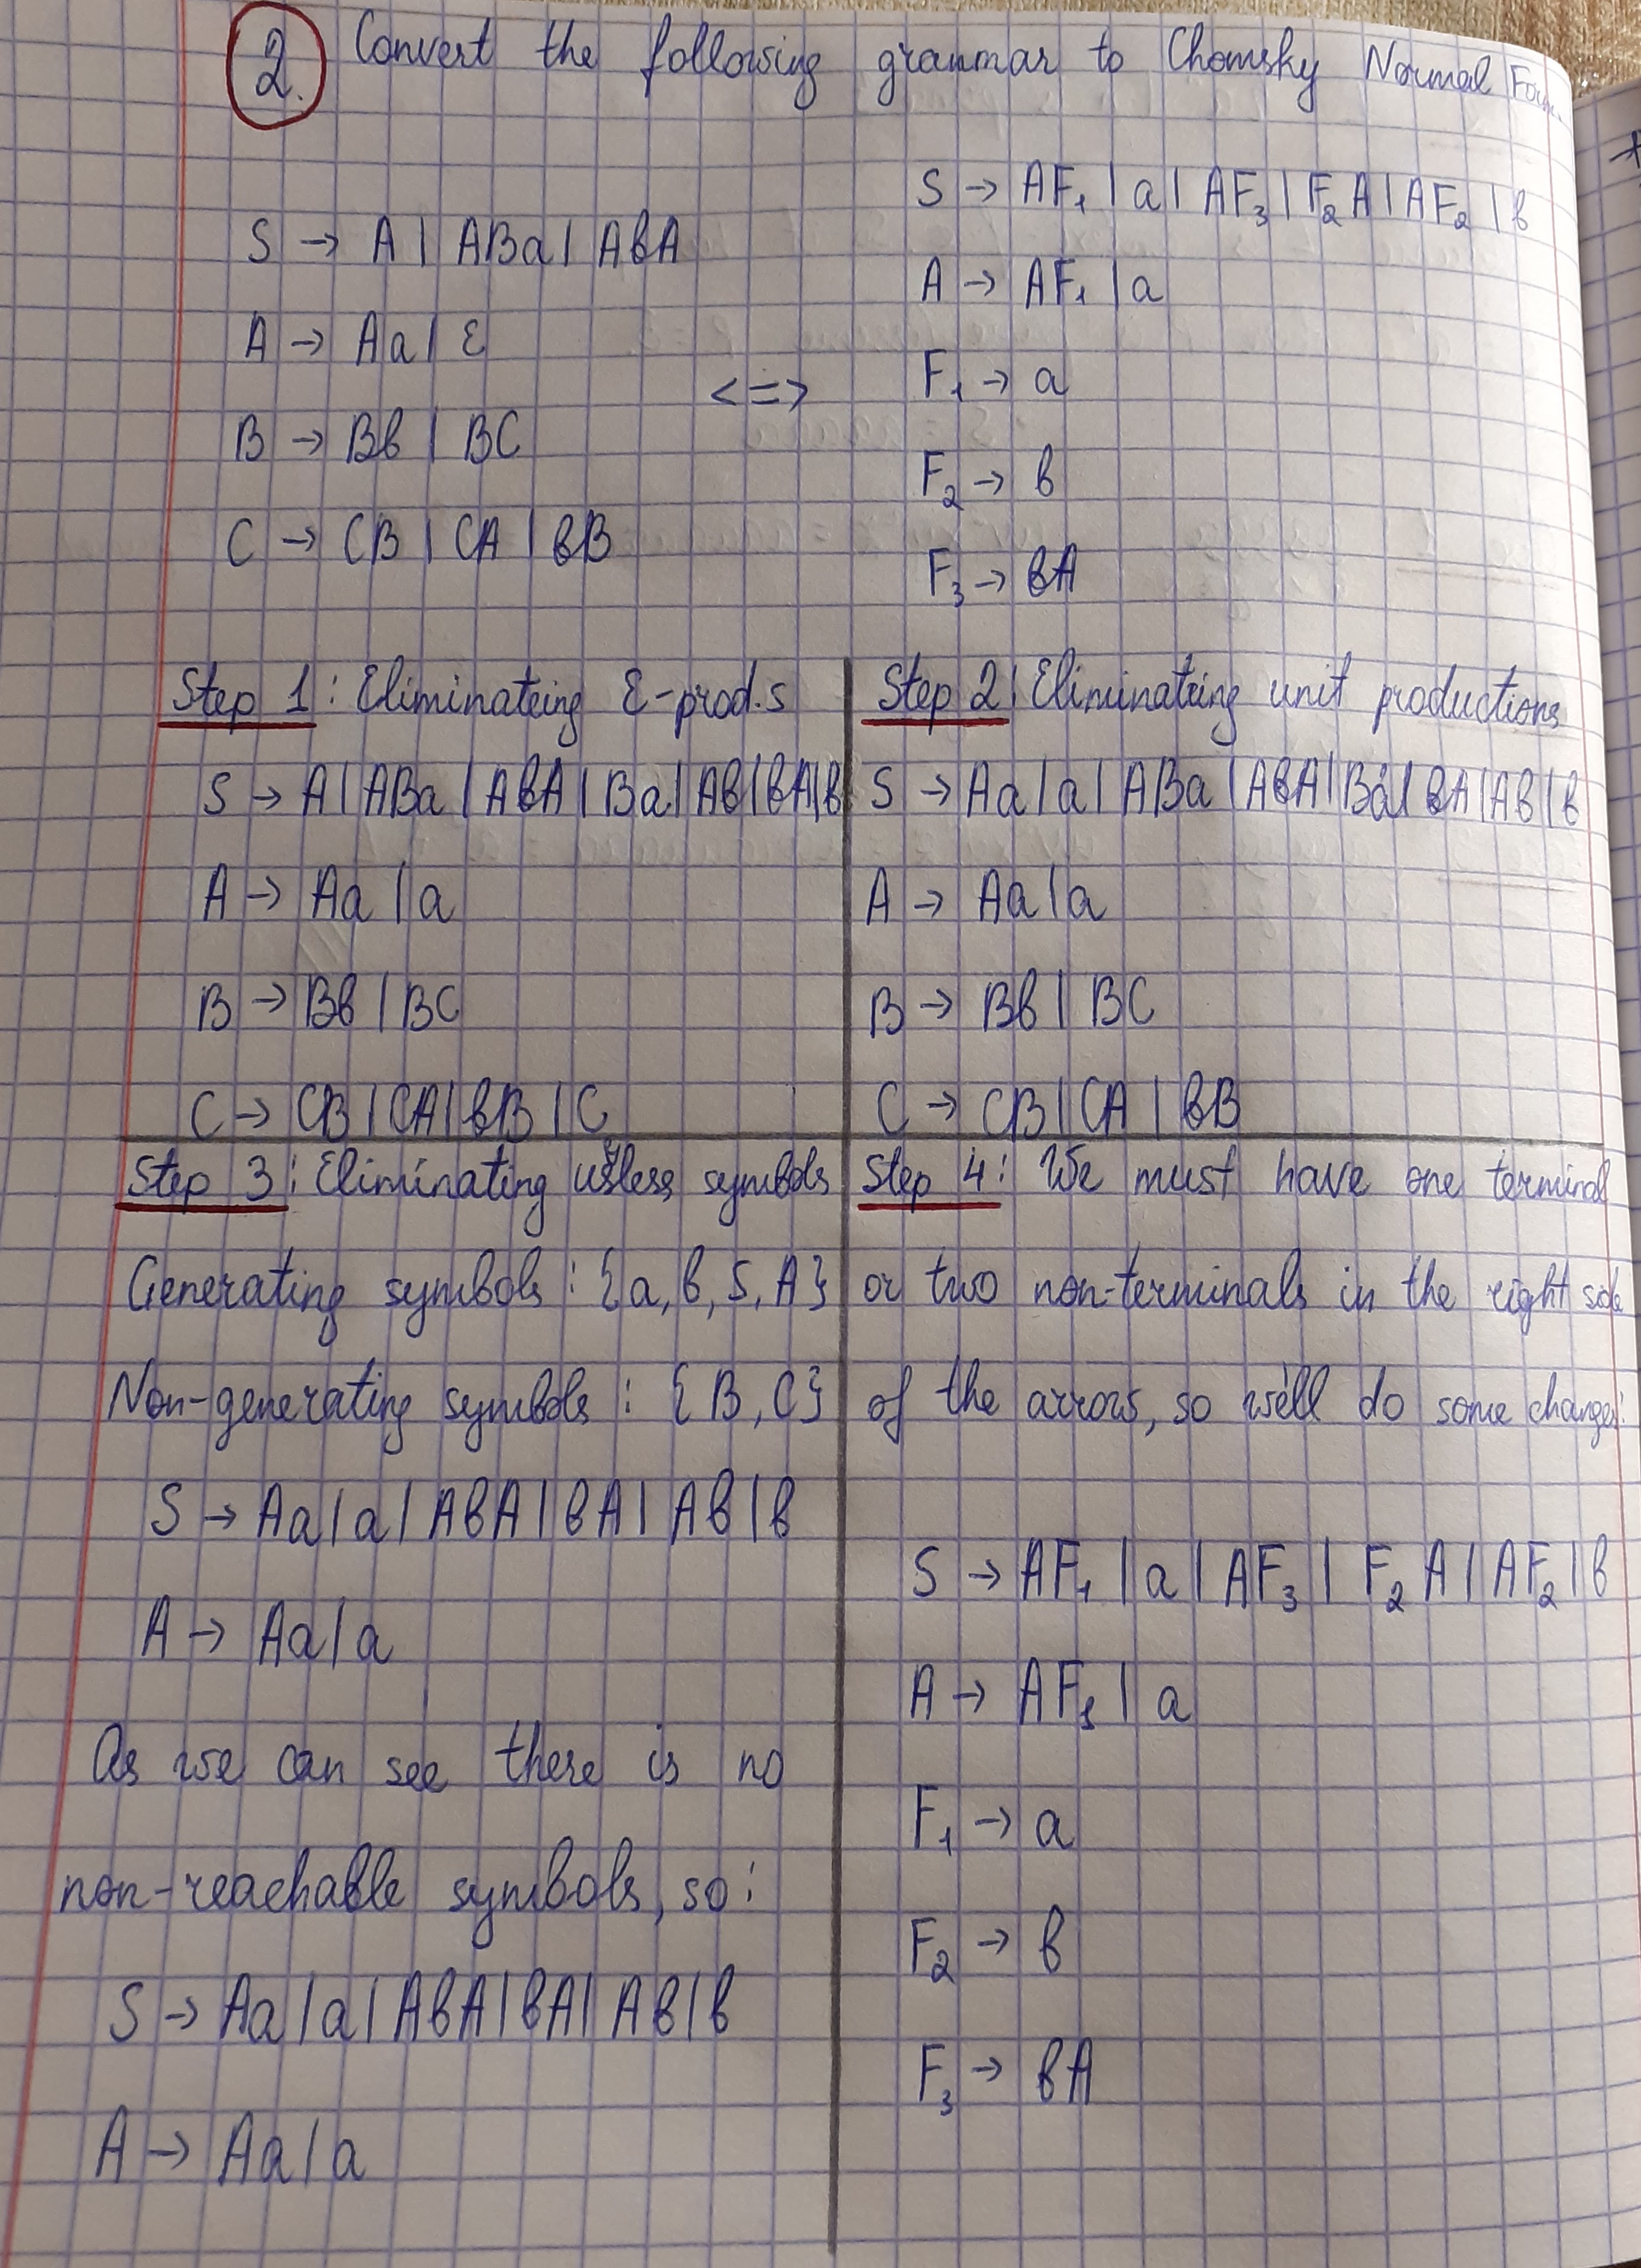 2. Convert the following grammar to Chomsky Normal Form.
S → A | ABa | AbA
A → Aa | ε
B → Bb | BC
C → CB | CA | bB
<=>
S → AF₁ | a | AF₃ | F₂A | AF₂ | b
A → AF₁ | a
F₁ → a
F₂ → b
F₃ → bA
Step 1: Eliminateing ε-prod.s
S → A | ABa | AbA | Ba | Ab | bA | b
A → Aa | a
B → Bb | BC
C → CB | CA | bB | C
Step 2: Eliminateing unit productions
S → Aa | a | ABa | AbA | Ba | bA | Ab | b
A → Aa | a
B → Bb | BC
C → CB | CA | bB
Step 3: Eliminating useless symbols
Generating symbols: {a, b, S, A}
Non-generating symbols: {B, C}
S → Aa | a | AbA | bA | Ab | b
A → Aa | a
As we can see there is no
non-reachable symbols, so:
S → Aa | a | AbA | bA | Ab | b
A → Aa | a
Step 4: We must have one terminal
or two non-terminals in the right side
of the arrows, so we'll do some changes:
S → AF₁ | a | AF₃ | F₂A | AF₂ | b
A → AF₁ | a
F₁ → a
F₂ → b
F₃ → bA